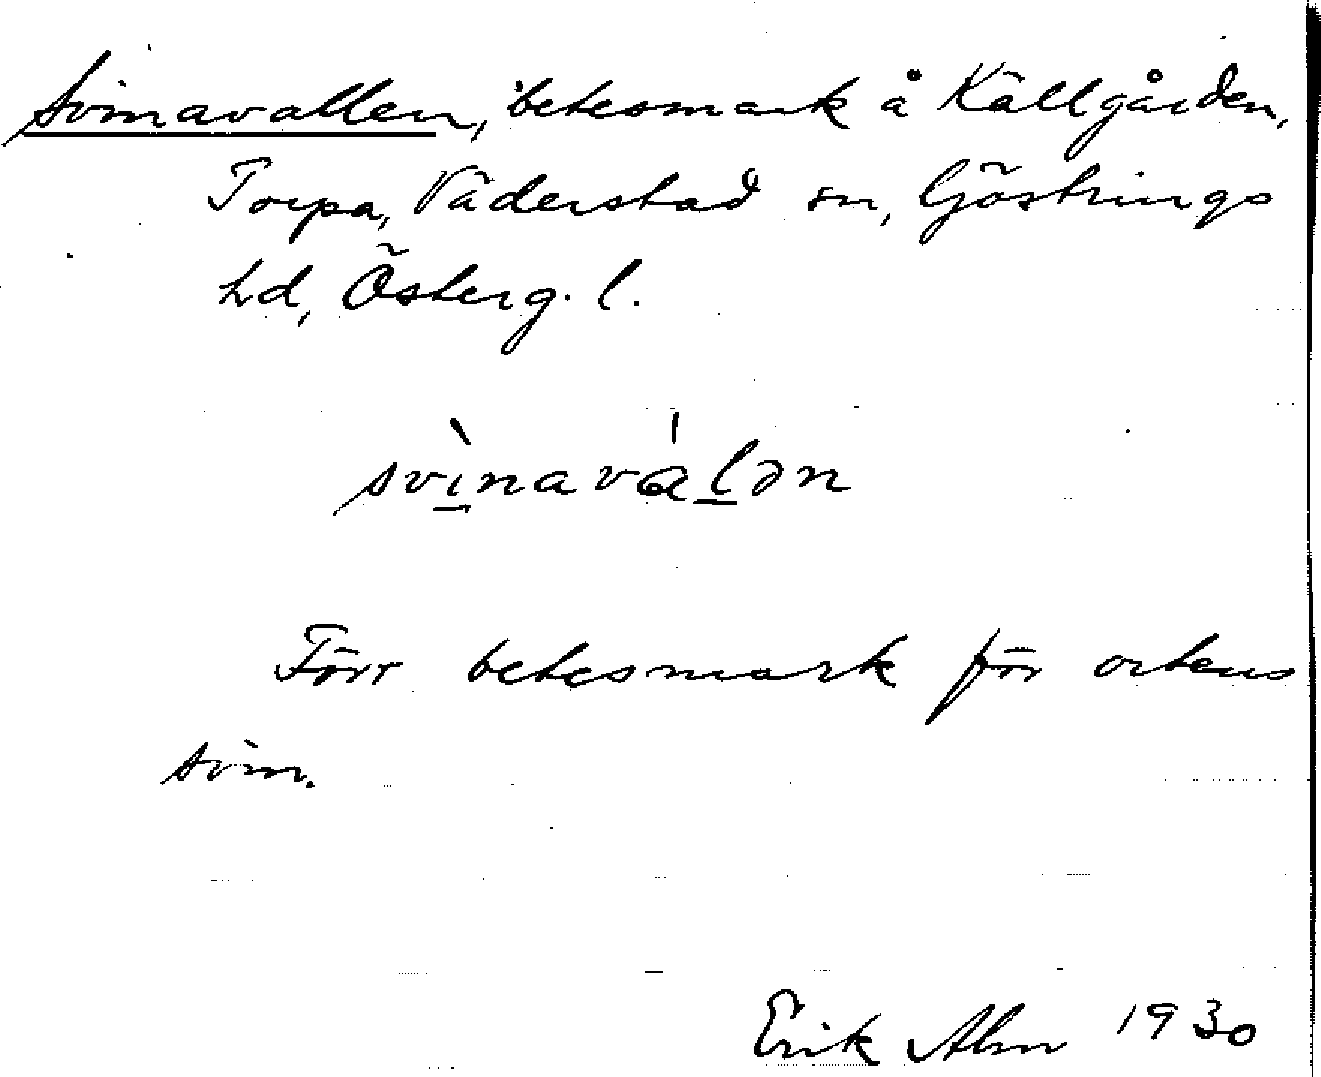 Svinavallen, betesmark å Källgården,
Torpa, Väderstad sn, Göstrings
hd, Österg. l.
svìnavàlən
Förr betesmark för ortens
svin.
Erik Alm 1930